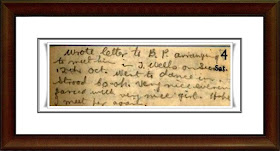 wrote letter to B.P. arranging
to meet him in T. Wells on Sun
12th Oct. Went to dance in
Strood Co-op. Very nice evening
danced with very nice girl. Hope
I meet her again.
4
Sat.